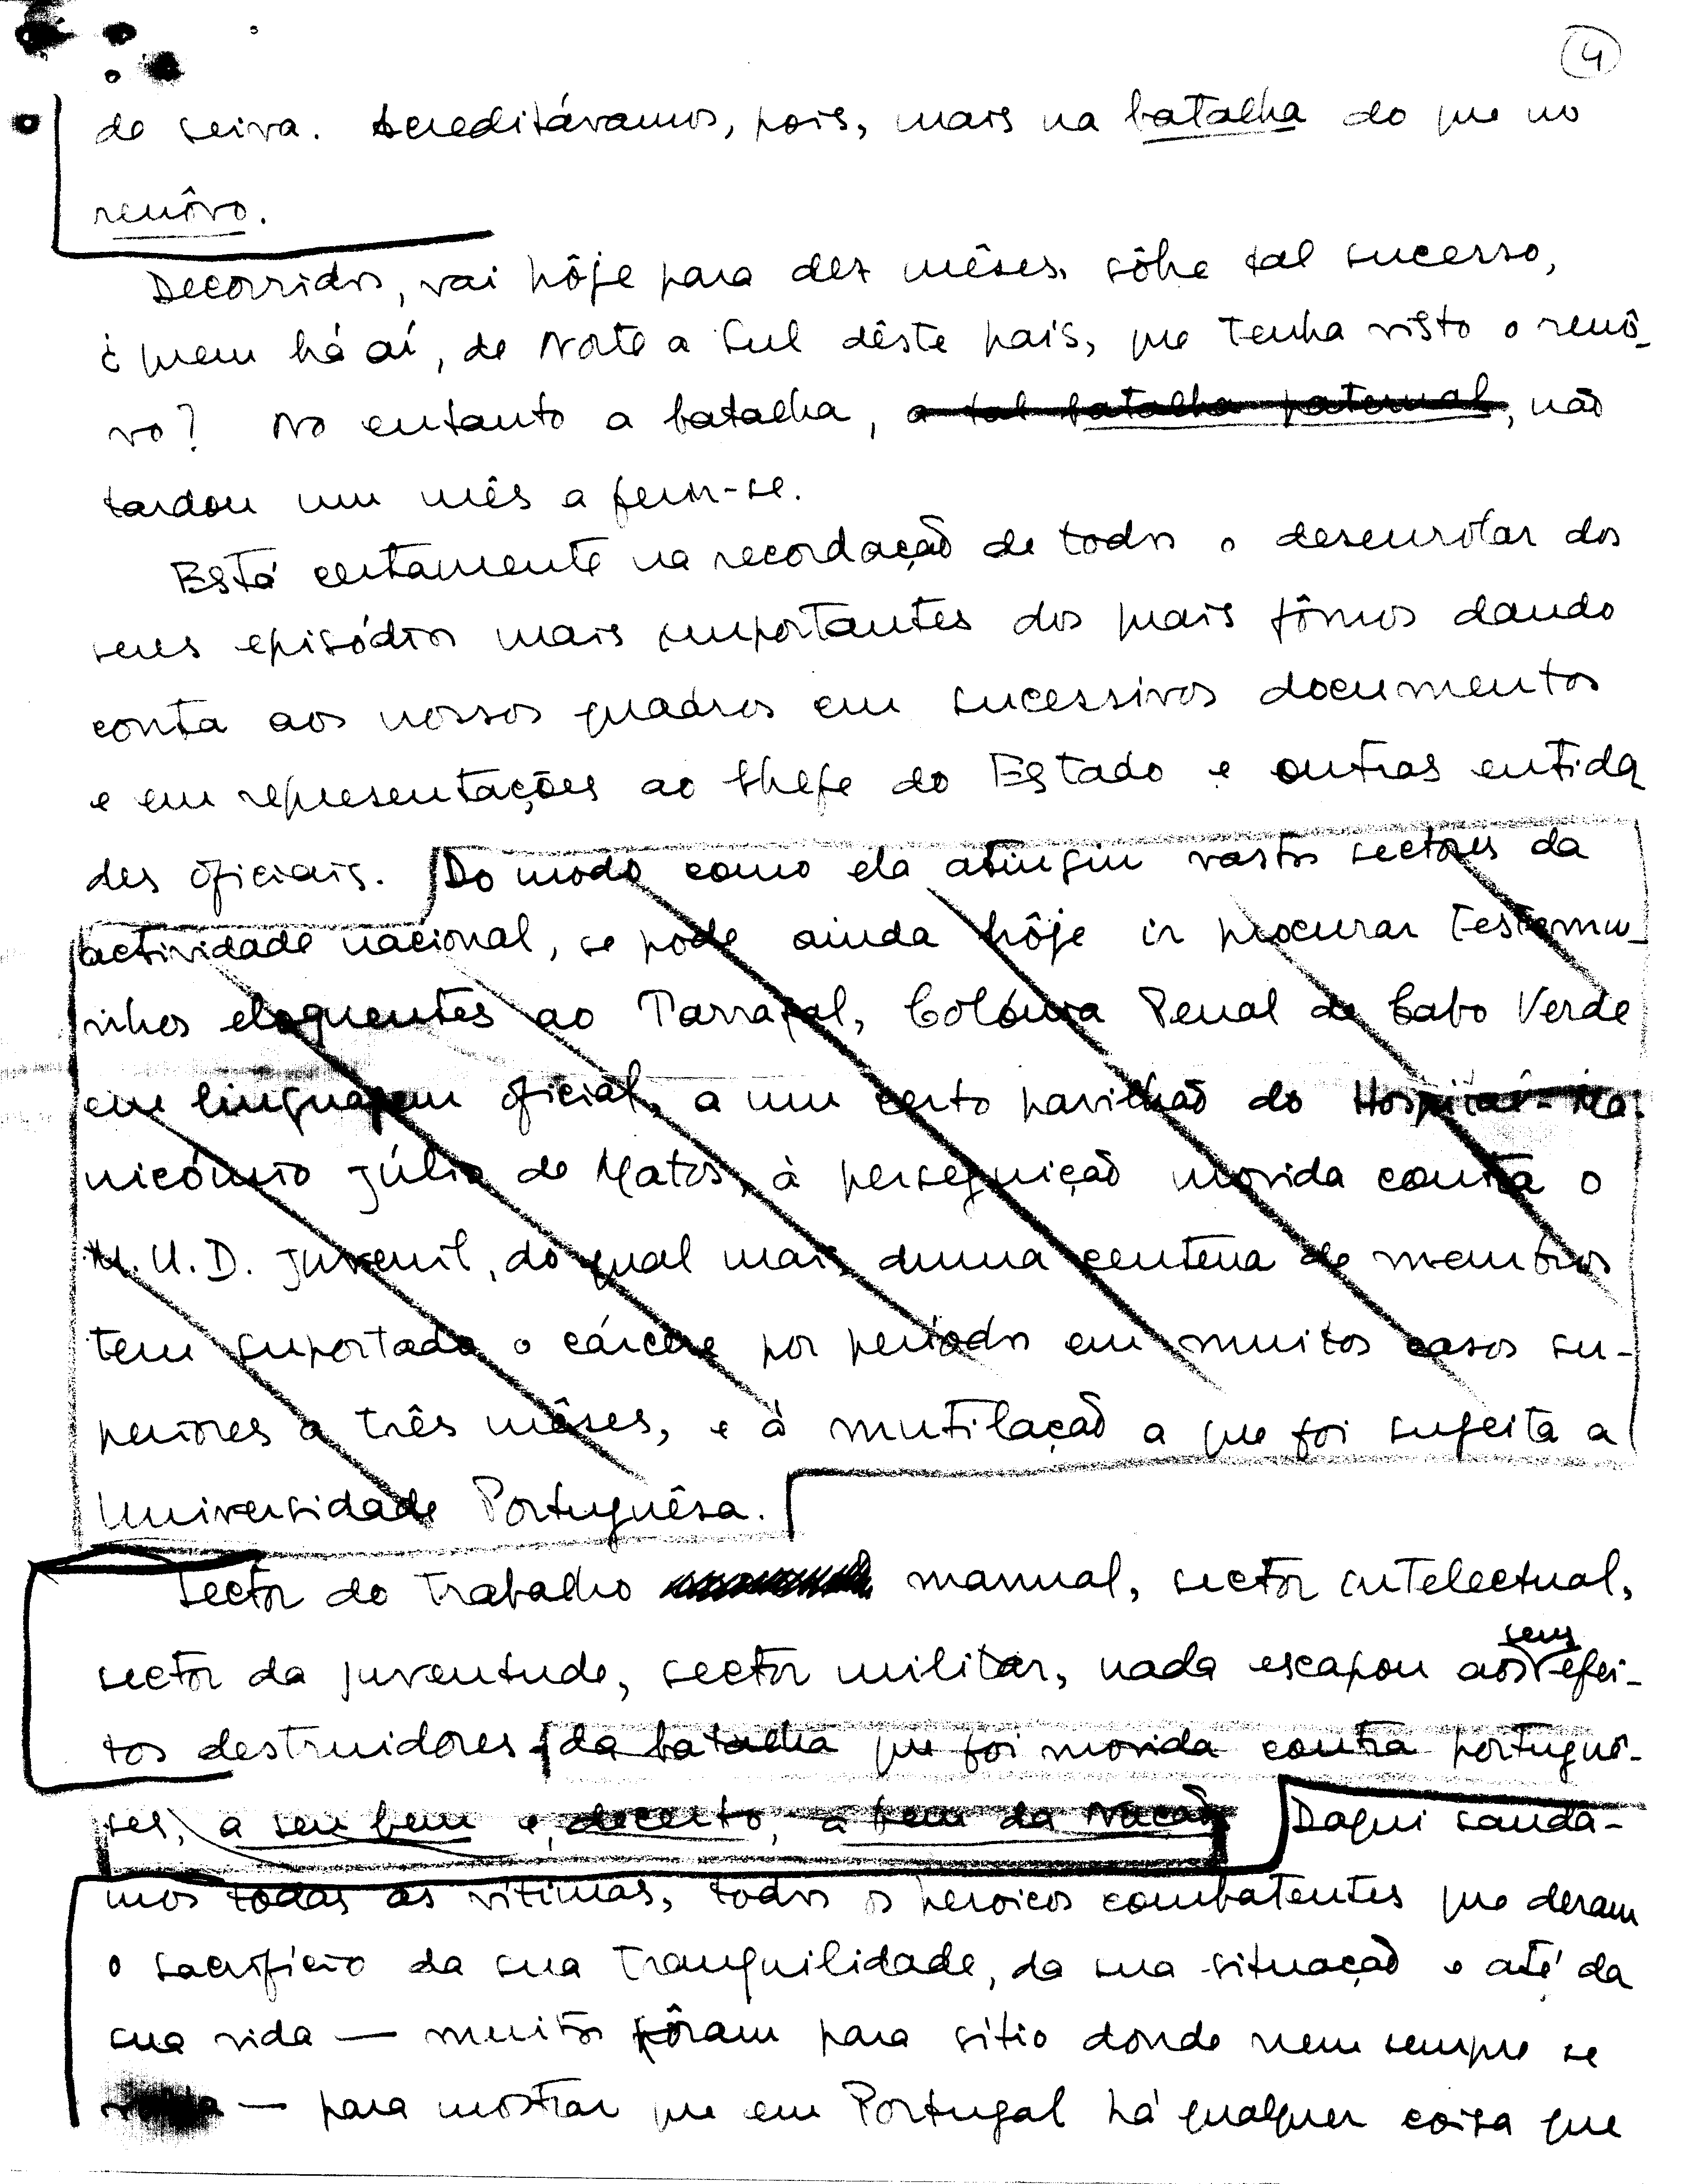 4
de seiva. Acreditávamos, pois, mais na batalha do que no
renôvo.
Decorridos, vai hôje para dez mêses, sôbre tal sucesso,
¿ quem há aí, de Norte a Sul dêste país, que tenha visto o renô-
vo? No entanto a batalha, a tal batalha paternal, não
tardou um mês a ferir-se.
Está certamente na recordação de todos o desenrolar dos
seus episódios mais importantes dos quais fômos dando
conta aos nossos quadros em sucessivos documentos
e em representações ao Chefe do Estado e outras entida
des oficiais. Do modo como ela atingiu vastos sectores da
actividade nacional, se pode ainda hôje ir procurar testemu-
nhos eloquentes ao Tarrafal, Colónia Penal de Cabo Verde
em linguagem oficial, a um certo pavilhão do Hospital-Ma-
nicómio Júlio de Matos, à perseguição movida contra o
M.U.D. juvenil, do qual mais duma centena de membros
tem suportado o cárcere por períodos em muitos casos su-
periores a três mêses, e à mutilação a que foi sujeita a
Universidade Portuguêsa.
Sector do trabalho manual, sector intelectual,
sector da juventude, sector militar, nada escapou aos seus efei-
tos destruidores da batalha que foi movida contra portuguê-
ses, a seu bem e, decerto, a bem da Nação. Daqui sauda-
mos todas as vítimas, todos os heroicos combatentes que deram
o sacrifício da sua tranquilidade, da sua situação e até da
sua vida — muitos fôram para sítio donde nem sempre se
— para mostrar que em Portugal há qualquer coisa que